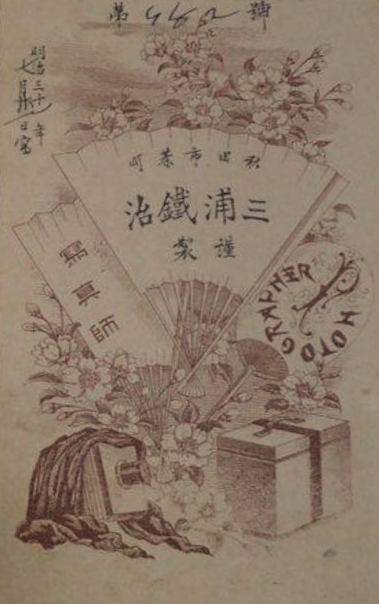 第 號
明治三十年
七月 日寫
秋田市茶町
三浦鐵治
謹製
寫真師
PHOTOGRAPHER